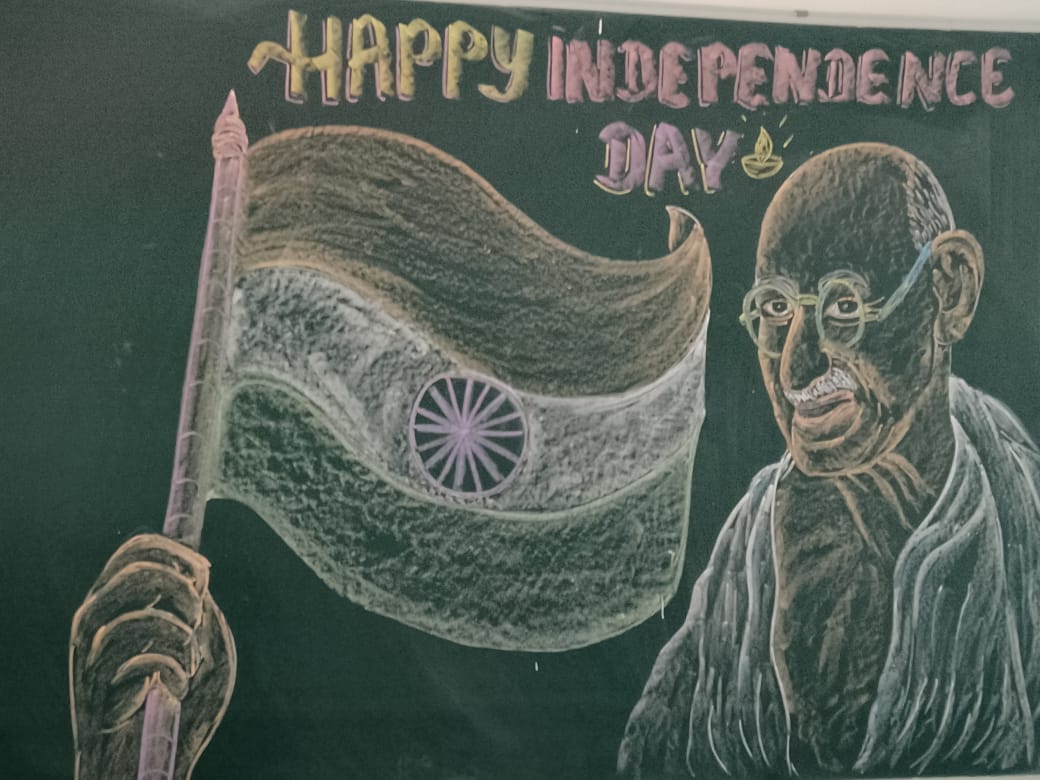 HAPPY INDEPENDENCE
DAY